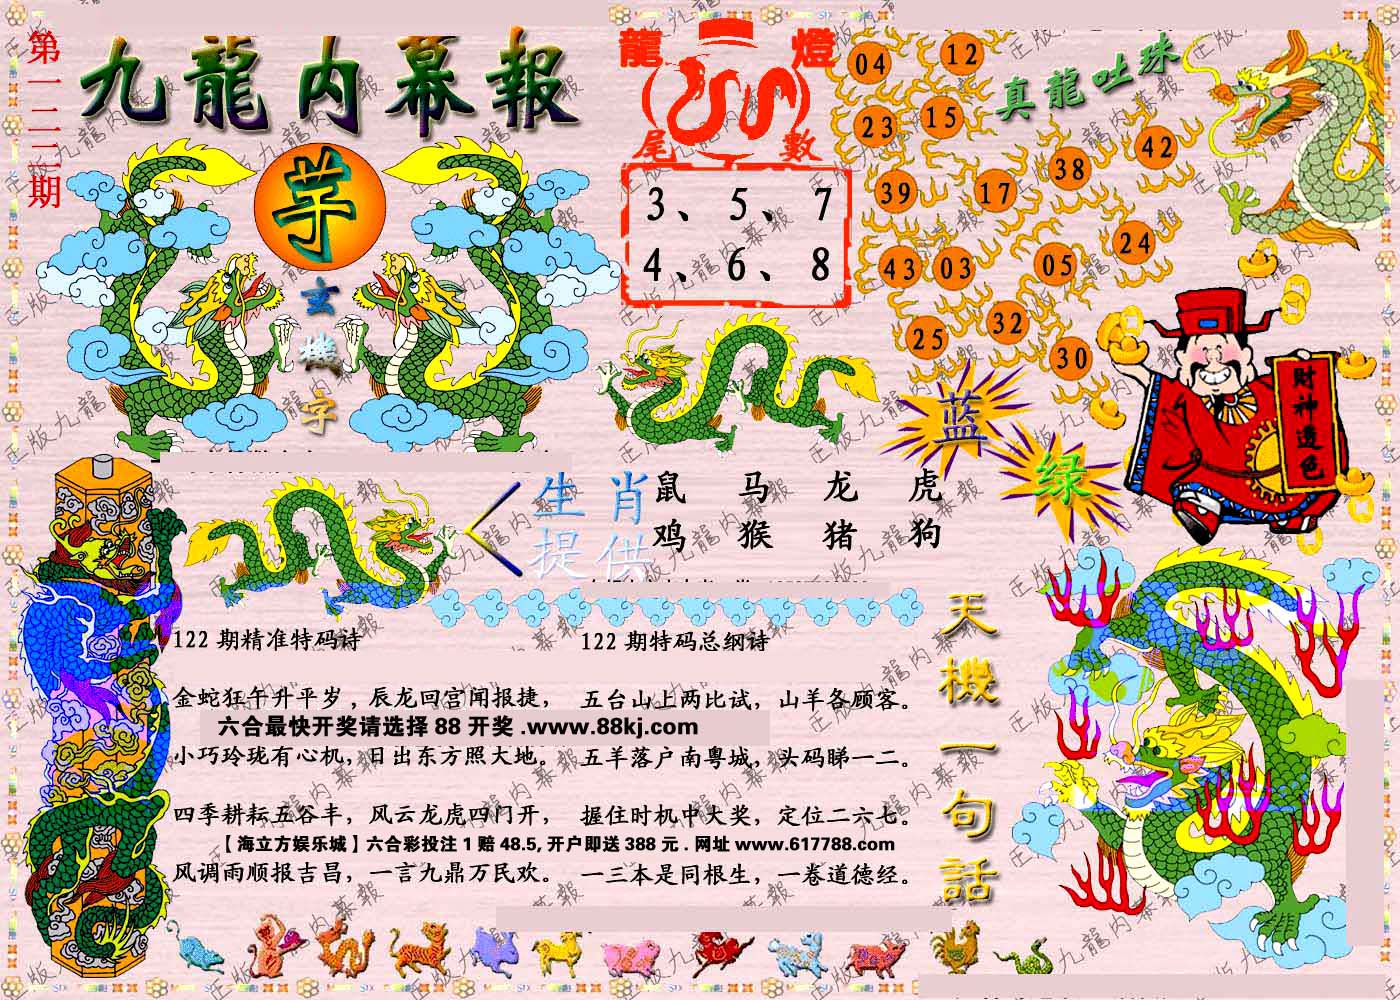 第一二二期
九龍內幕報
芋
玄機字
龍燈
尾數
3、5、7
4、6、8
真龍吐珠
04 12
23 15
39 17 38 42
43 03 05 24
25 32 30
财神透色
蓝
绿
生肖
提供
鼠 马 龙 虎
鸡 猴 猪 狗
天機一句話
122 期精准特码诗
金蛇狂午升平岁，辰龙回宫闻报捷，
小巧玲珑有心机，日出东方照大地。
四季耕耘五谷丰，风云龙虎四门开，
风调雨顺报吉昌，一言九鼎万民欢。
122 期特码总纲诗
五台山上两比试，山羊各顾客。
五羊落户南粤城，头码睇一二。
握住时机中大奖，定位二六七。
一三本是同根生，一卷道德经。
六合最快开奖请选择 88 开奖 .www.88kj.com
【海立方娱乐城】六合彩投注 1 赔 48.5, 开户即送 388 元 . 网址 www.617788.com
正版九龍內幕報